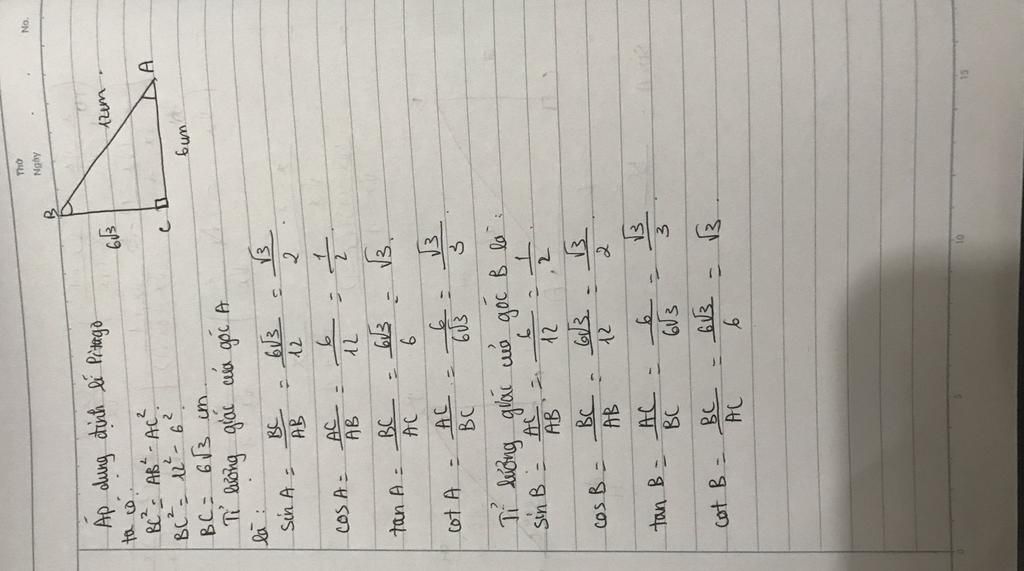 No.
Thứ
Ngày
B
12cm
A
6√3
C
6cm
Áp dụng định lí Pitago
ta có:
BC² = AB² - AC²
BC² = 12² - 6²
BC = 6√3 cm
Tỉ lường giác của góc A
là:
sin A = BC/AB = 6√3/12 = √3/2
cos A = AC/AB = 6/12 = 1/2
tan A = BC/AC = 6√3/6 = √3
cot A = AC/BC = 6/6√3 = √3/3
Tỉ lường giác của góc B là:
sin B = AC/AB = 6/12 = 1/2
cos B = BC/AB = 6√3/12 = √3/2
tan B = AC/BC = 6/6√3 = √3/3
cot B = BC/AC = 6√3/6 = √3
0
5
10
15